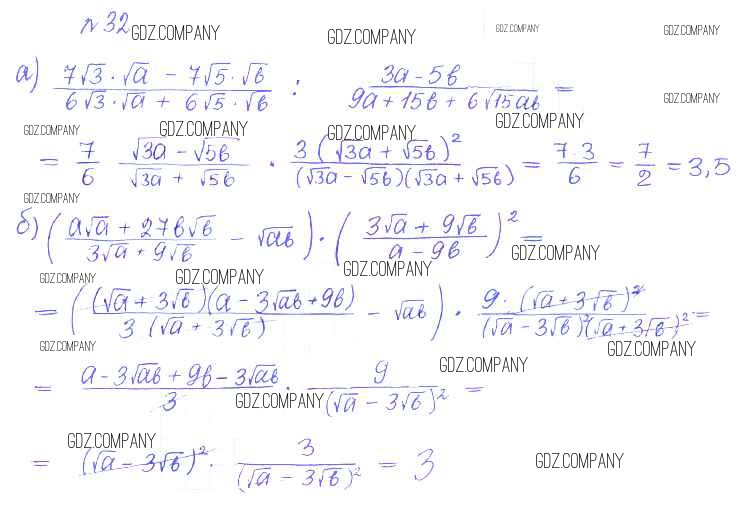 №32 GDZ.COMPANY GDZ.COMPANY GDZ.COMPANY GDZ.COMPANY
а) (7√3·√a − 7√5·√b)/(6√3·√a + 6√5·√b) : (3a − 5b)/(9a + 15b + 6√15ab) =
GDZ.COMPANY
GDZ.COMPANY GDZ.COMPANY GDZ.COMPANY GDZ.COMPANY
= 7/6 (√3a − √5b)/(√3a + √5b) · 3(√3a + √5b)²/((√3a − √5b)(√3a + √5b)) = 7·3/6 = 7/2 = 3,5
GDZ.COMPANY
б) ((a√a + 27b√b)/(3√a + 9√b) − √ab) · ((3√a + 9√b)/(a − 9b))² =
GDZ.COMPANY
GDZ.COMPANY GDZ.COMPANY GDZ.COMPANY
= ((√a + 3√b)(a − 3√ab + 9b)/(3(√a + 3√b)) − √ab) · 9·(√a + 3√b)²/((√a − 3√b)²(√a + 3√b)²) =
GDZ.COMPANY GDZ.COMPANY
GDZ.COMPANY
= (a − 3√ab + 9b − 3√ab)/3 · 9/(√a − 3√b)² =
GDZ.COMPANY
GDZ.COMPANY
= (√a − 3√b)² · 3/(√a − 3√b)² = 3
GDZ.COMPANY